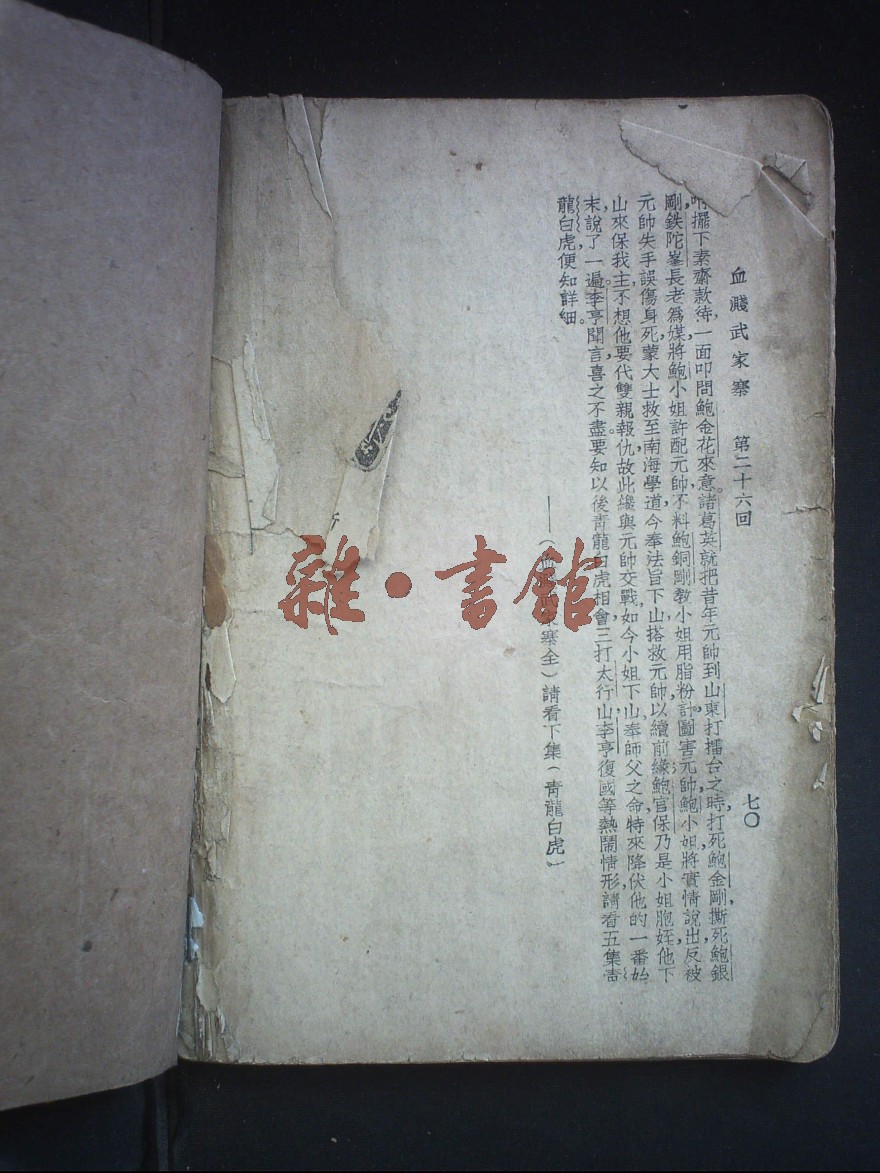 血濺武家寨 第二十六回
七〇
擺下素齋款待，一面叩問鮑金花來意。諸葛英就把昔年元帥到山東打擂台之時，打死鮑金剛，撕死鮑銀
剛，鉄陀峯長老爲媒，將鮑小姐許配元帥，不料鮑銅剛教小姐用脂粉計圖害元帥，鮑小姐將實情說出，反被
元帥失手誤傷身死，蒙大士救至南海學道，今奉法旨下山搭救元帥，以續前緣，鮑官保乃是小姐胞姪，他下
山來保我主，不想他要代雙親報仇，故此纔與元帥交戰，如今小姐下山，奉師父之命特來降伏他的一番始
末，說了一遍。李亨聞言，喜之不盡。要知以後青龍白虎相會，三打太行山，李亨復國等熱鬧情形，請看五集青
龍白虎，便知詳細。
——（血 寨全）請看下集（青龍白虎）
雜·書館